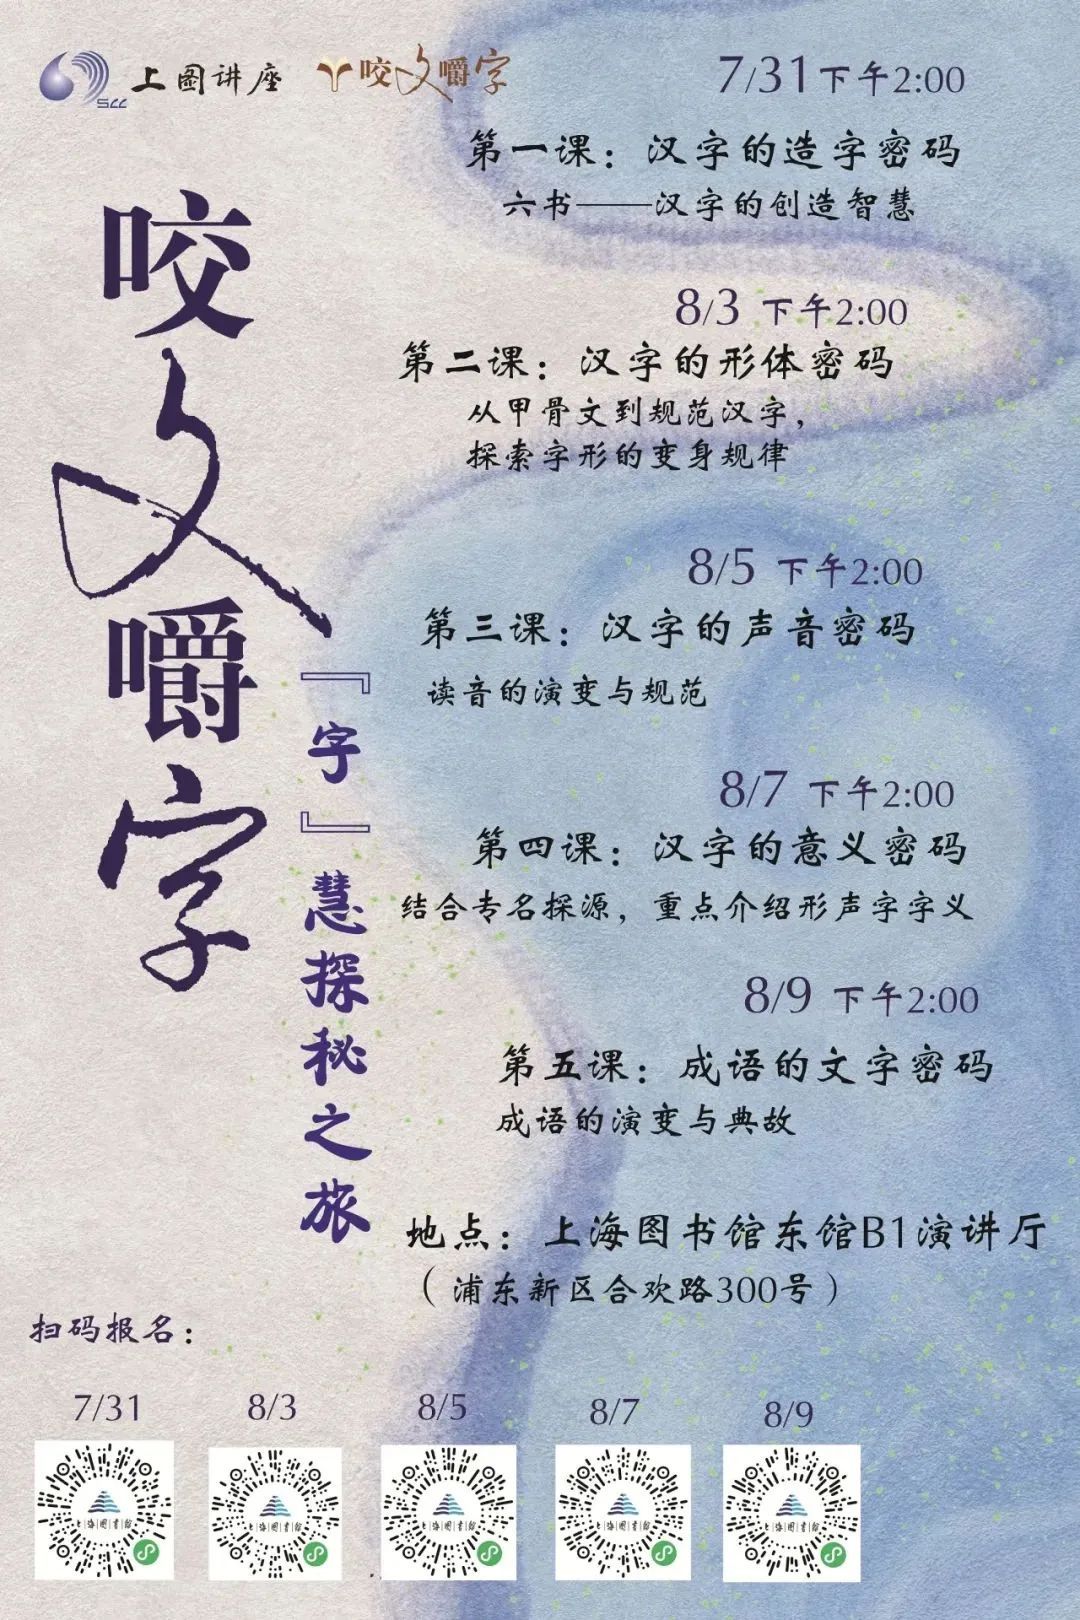 SCC 上图讲座 咬文嚼字
咬文嚼字
『字』慧探秘之旅
7/31下午2:00
第一课：汉字的造字密码
六书——汉字的创造智慧
8/3 下午2:00
第二课：汉字的形体密码
从甲骨文到规范汉字，
探索字形的变身规律
8/5 下午2:00
第三课：汉字的声音密码
读音的演变与规范
8/7 下午2:00
第四课：汉字的意义密码
结合专名探源，重点介绍形声字字义
8/9 下午2:00
第五课：成语的文字密码
成语的演变与典故
地点：上海图书馆东馆B1演讲厅
（浦东新区合欢路300号）
扫码报名：
7/31 8/3 8/5 8/7 8/9
上海图书馆 上海图书馆 上海图书馆 上海图书馆 上海图书馆